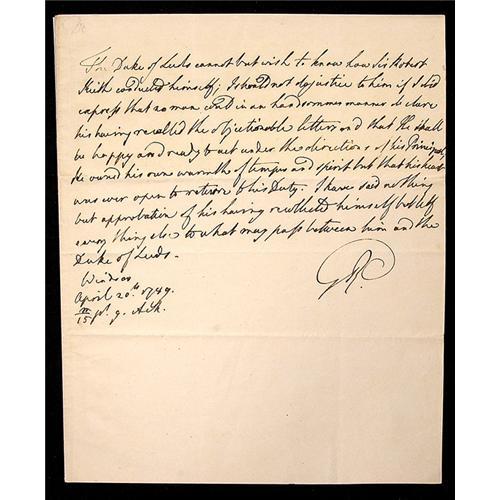 The Duke of Leeds cannot but wish to know how Sir Robert
Keith conducted himself; I should not do justice to him if I did
express that no man could in an handsommer manner declare
his having recalled the objectionable letters and that He shall
be happy and ready to act under the directions of his Principal,
He owned his own warmth of temper and spirit but that his heart
was ever open to return to his Duty. I have said nothing
but approbation of his having recollected himself but left
every thing else to what may pass between him and the
Duke of Leeds.
Windsor
April 20th 1789.
15 pt. 9. A.M.
GR